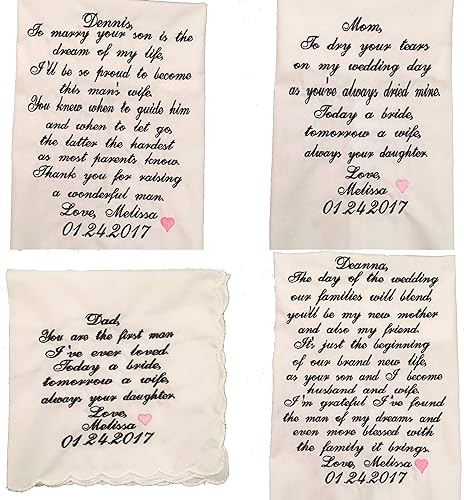 Dennis,
To marry your son is the
dream of my life,
I'll be so proud to become
this man's wife.
You knew when to guide him
and when to let go,
the latter the hardest
as most parents know.
Thank you for raising
a wonderful man.
Love, Melissa
01.24.2017
Mom,
To dry your tears
on my wedding day
as you've always dried mine.
Today a bride,
tomorrow a wife,
always your daughter.
Love,
Melissa
01.24.2017
Dad,
You are the first man
I've ever loved.
Today a bride,
tomorrow a wife,
always your daughter.
Love,
Melissa
01.24.2017
Deanna,
The day of the wedding
our families will blend,
you'll be my new mother
and also my friend.
It's just the beginning
of our brand new life,
as your son and I become
husband and wife.
I'm grateful I've found
the man of my dreams and
even more blessed with
the family it brings.
Love, Melissa
01.24.2017